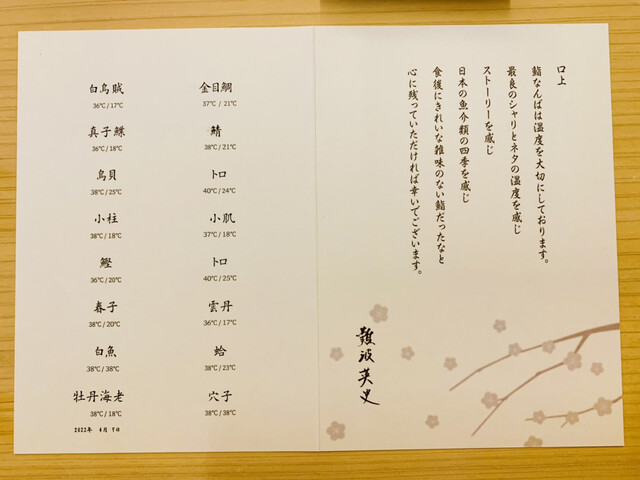 口上
鮨なんばは温度を大切にしております。
最良のシャリとネタの温度を感じ
ストーリーを感じ
日本の魚介類の四季を感じ
食後にきれいな雑味のない鮨だったなと
心に残っていただければ幸いでございます。
難波英史
白烏賊
36℃/17℃
真子鰈
36℃/18℃
鳥貝
38℃/25℃
小柱
38℃/18℃
鰹
36℃/20℃
春子
38℃/20℃
白魚
38℃/38℃
牡丹海老
38℃/18℃
金目鯛
37℃/21℃
鯖
38℃/21℃
トロ
40℃/24℃
小肌
37℃/18℃
トロ
40℃/25℃
雲丹
36℃/17℃
蛤
38℃/23℃
穴子
38℃/38℃
2022年 4月 9日